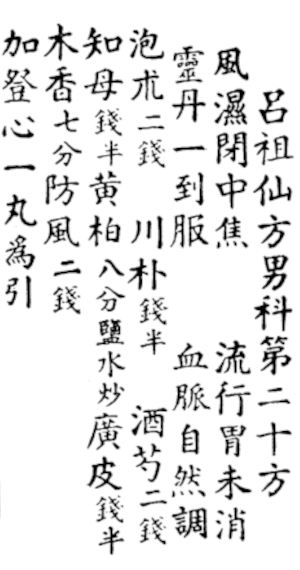 呂祖仙方男科第二十方
風濕閉中焦 流行胃未消
靈丹一到服 血脈自然調
泡朮二錢 川朴錢半 酒芍二錢
知母錢半黃柏八分鹽水炒廣皮錢半
木香七分防風二錢
加登心一丸為引